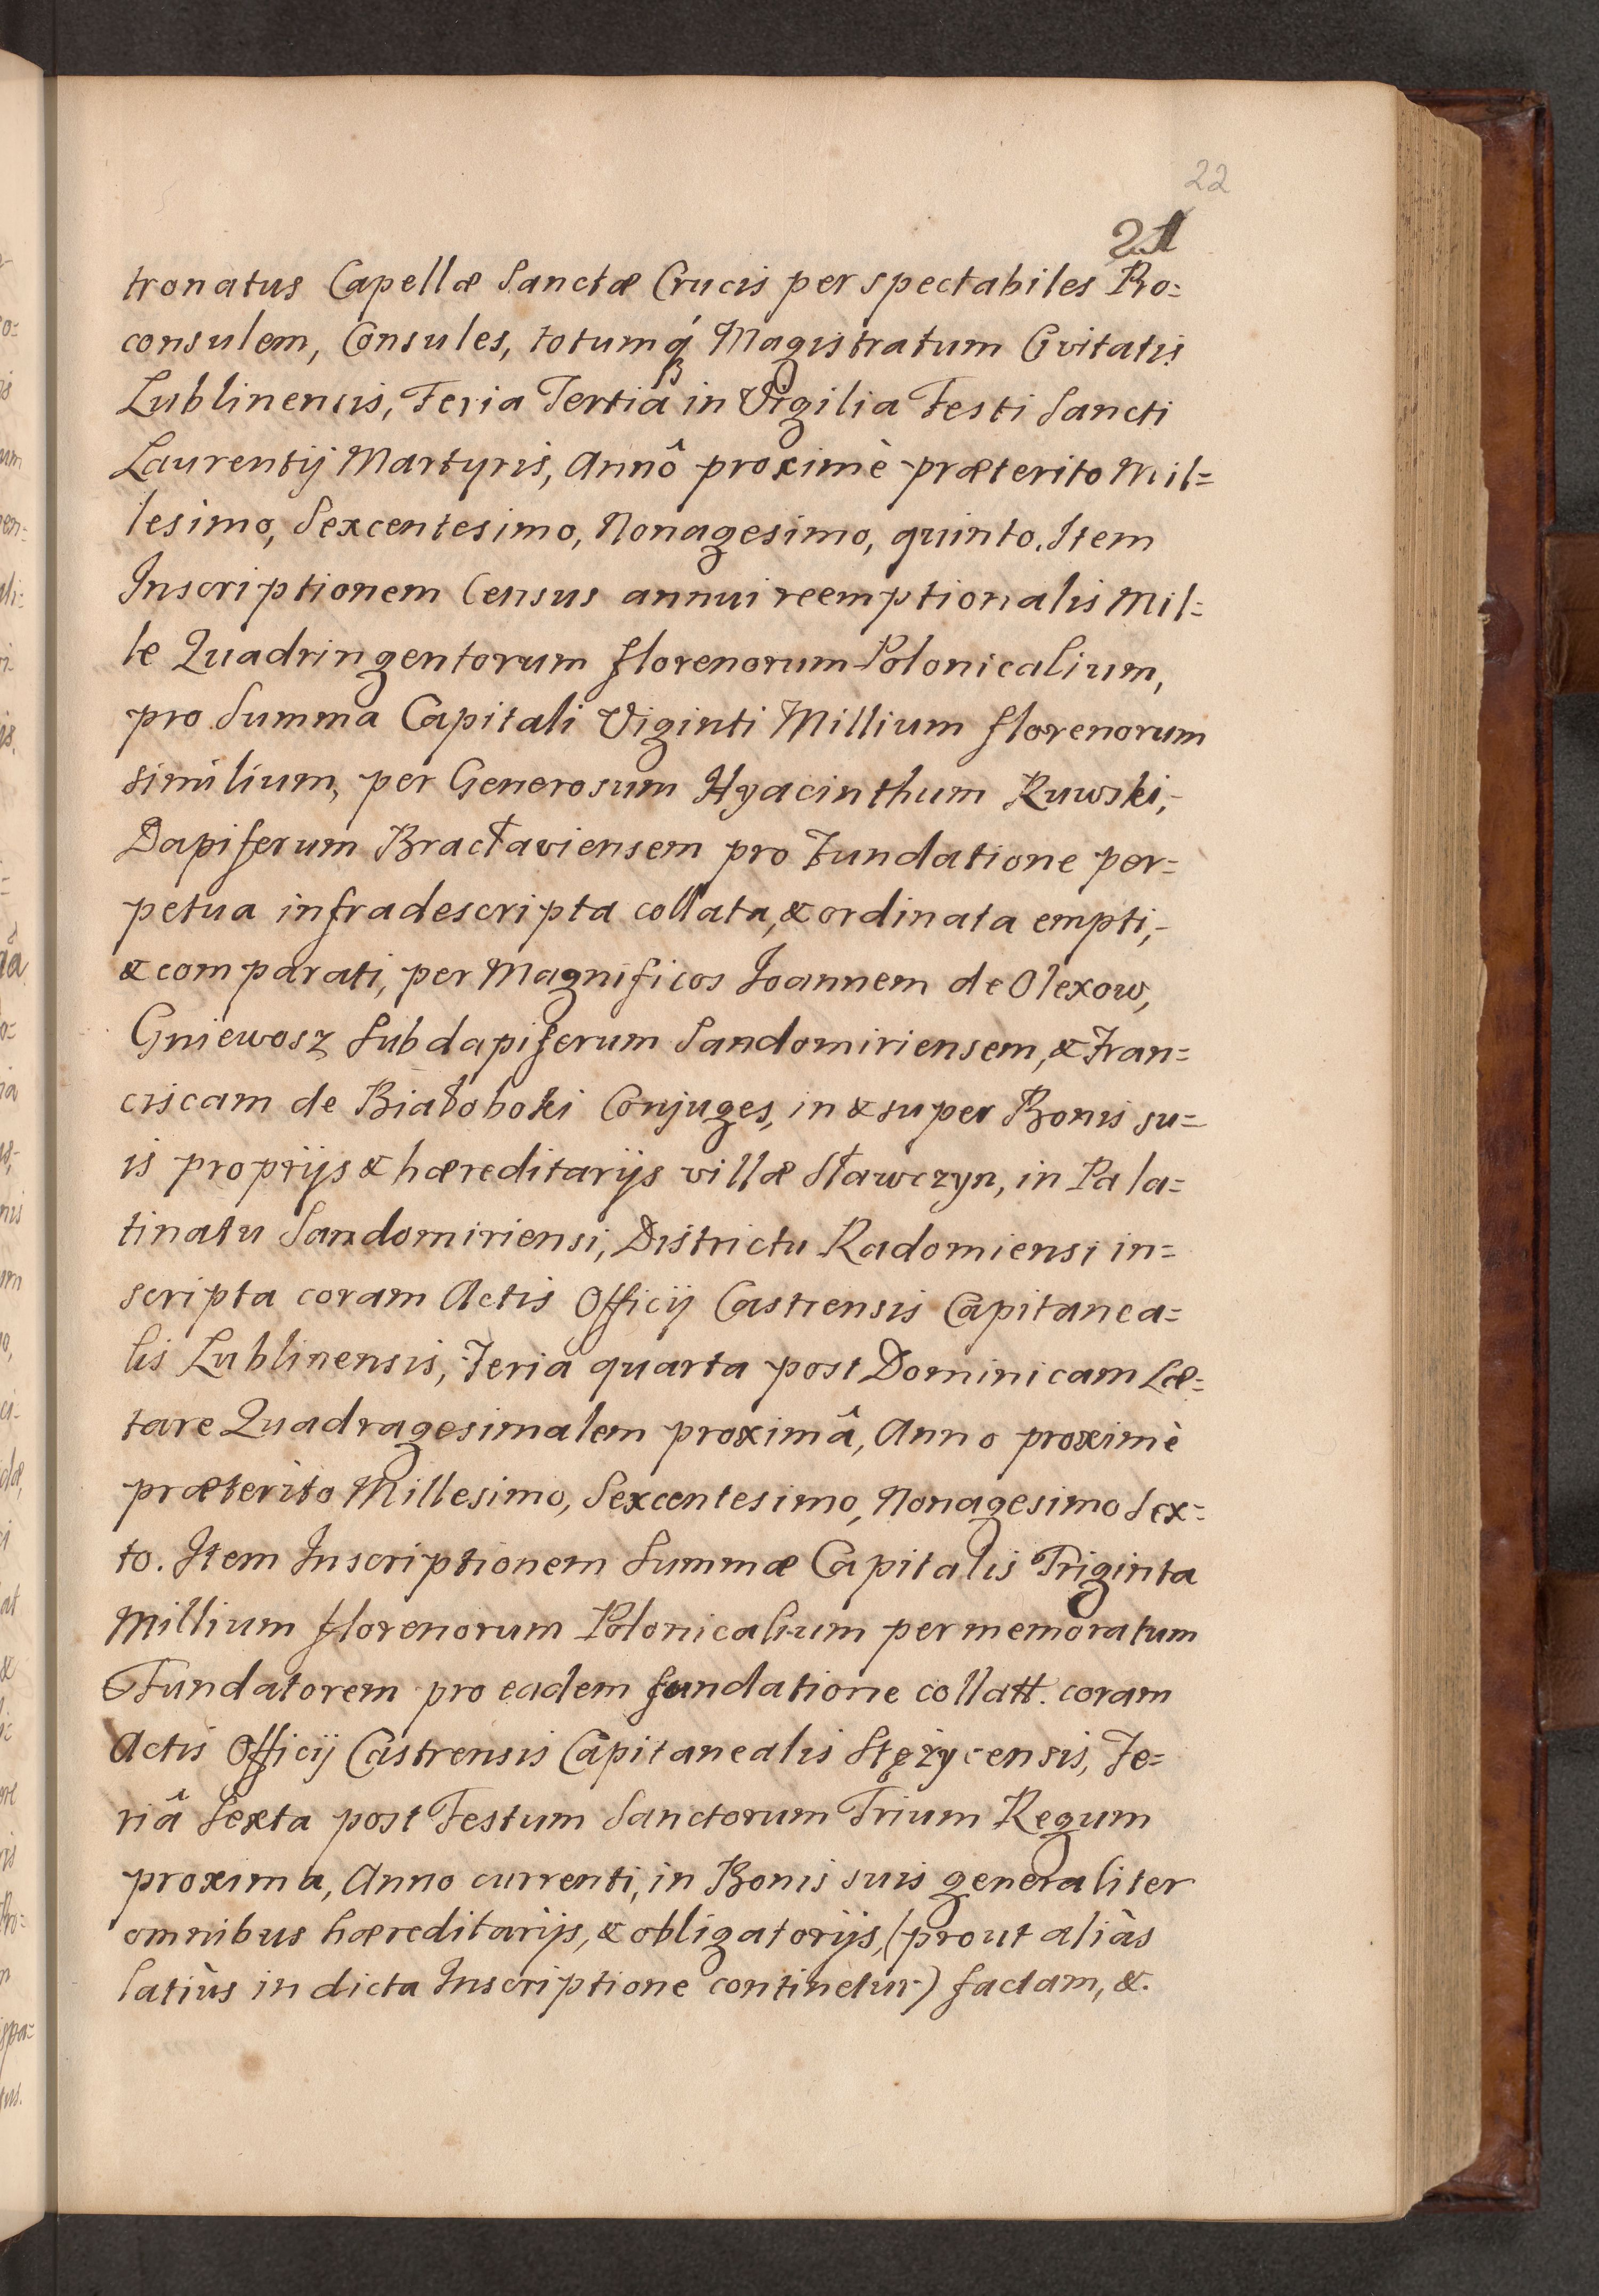 22
21
tronatus Capellæ Sanctæ Crucis per spectabiles Pro=
consulem, Consules, totumq́ Magistratum Civitatis
Lublinensis, Feria Tertia in Vigilia Festi Sancti
Laurentij Martyris, Annô proximè præterito Mil=
lesimo, Sexcentesimo, Nonagesimo, quinto. Item
Inscriptionem Census annui reemptionalis Mil=
le Quadringentorum florenorum Polonicalium,
pro Summa Capitali Viginti Millium florenorum
similium, per Generosum Hyacinthum Ruwski,
Dapiferum Bracłaviensem pro Fundatione per=
petua infradescripta collata, & ordinata empti,
& comparati, per Magnificos Joannem de Olexow,
Gniewosz Subdapiferum Sandomiriensem, & Fran=
ciscam de Białoboki Conjuges, in & super Bonis su=
is proprijs & hæreditarijs villæ Sławczyn, in Pala=
tinatu Sandomiriensi, Districtu Radomiensi in=
scripta coram Actis Officij Castrensis Capitanea=
lis Lublinensis, Feria quarta post Dominicam Læ=
tare Quadragesimalem proximâ, Anno proximè
præterito Millesimo, Sexcentesimo, Nonagesimo Sex=
to. Item Inscriptionem Summæ Capitalis Triginta
Millium florenorum Polonicalium per memoratum
Fundatorem pro eadem fundatione collatt. coram
Actis Officij Castrensis Capitanealis Stężycensis, Fe=
riâ Sexta post Festum Sanctorum Trium Regum
proxima, Anno currenti, in Bonis suis generaliter
omnibus hæreditarijs, & obligatorijs, (prout aliàs
latiùs in dicta Inscriptione continetur) factam, &.